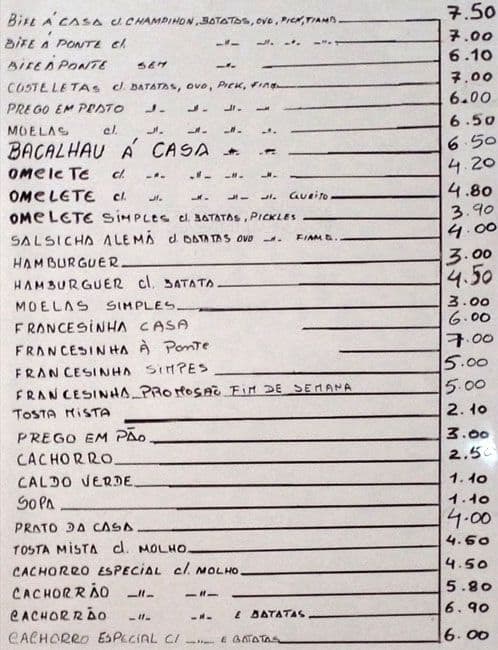 BIFE Á CASA c/ CHAMPINHON, BATATAS, OVO, PICK, FIAMB 7.50
BIFE Á PONTE c/ -"- -"- -"- -"- 7.00
BIFE Á PONTE SEM -"- 6.10
COSTELETAS c/ BATATAS, OVO, PICK, FIAM 7.00
PREGO EM PRATO -"- -"- -"- -"- 6.00
MOELAS c/ -"- -"- -"- -"- 6.50
BACALHAU Á CASA -"- -"- 6.50
OMELETE c/ -"- -"- -"- -"- 4.20
OMELETE c/ -"- -"- -"- -"- QUEIJO 4.80
OMELETE SIMPLES c/ BATATAS, PICKLES 3.90
SALSICHA ALEMÃ c/ BATATAS OVO -"- FIAMB. 4.00
HAMBURGUER 3.00
HAMBURGUER c/ BATATA 4.50
MOELAS SIMPLES 3.00
FRANCESINHA CASA 6.00
FRANCESINHA À PONTE 7.00
FRANCESINHA SIMPES 5.00
FRANCESINHA PROMOSÃO FIM DE SEMANA 5.00
TOSTA MISTA 2.10
PREGO EM PÃO 3.00
CACHORRO 2.50
CALDO VERDE 1.10
SOPA 1.10
PRATO DA CASA 4.00
TOSTA MISTA c/ MOLHO 4.50
CACHORRO ESPECIAL c/ MOLHO 4.50
CACHORRÃO -"- -"- 5.80
CACHORRÃO -"- -"- E BATATAS 6.90
CACHORRO ESPECIAL C/ -"- E BATATAS 6.00